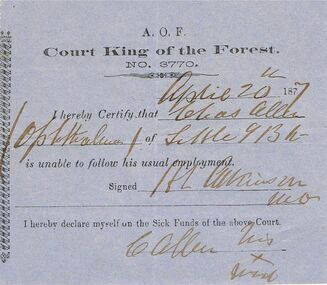 A. O. F.
Court King of the Forest.
NO. 3770.
April 20th 1877
I hereby Certify that Chas Allen
of Little 913 h
is unable to follow his usual employment.
Signed R L Atkinson
I hereby declare myself on the Sick Funds of the above Court.
C Allen his
+